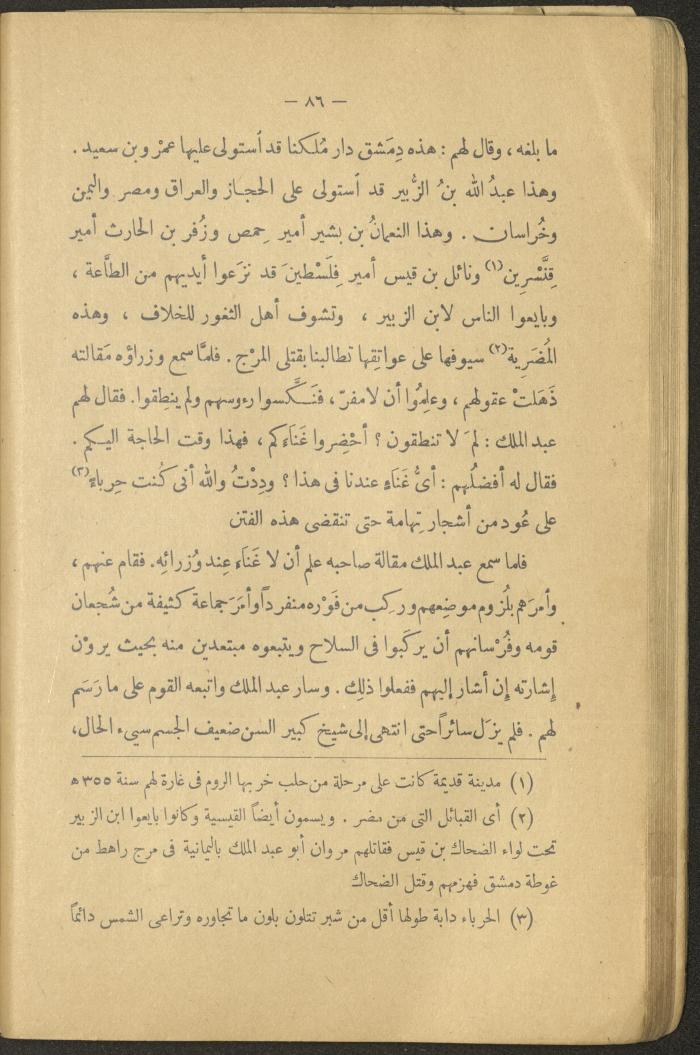 — ٨٦ —
ما بلغه ، وقال لهم : هذه دِمَشق دار مُلكنا قد ٱستولى عليها عمرْ وبن سعيد .
وهذا عبدُ الله بنُ الزُّبير قد ٱستولى على الحجاز والعراق ومصر واليمن
وخُراسان . وهذا النعمانُ بن بشير أمير حِمص وزُفر بن الحارث أمير
قِنَّسْرِين(١) ونائل بن قيس أمير فِلَسْطينَ قد نزَعوا أيديهم من الطَّاعة ،
وبايعوا الناس لابن الزبير ، وتشوف أهل الثغور للخلاف ، وهذه
المُضَرِية(٢) سيوفها على عواتِقِها تطالبنا بقتلى المرْج . فلمَّا سمع وزراؤه مَقالته
ذَهَلتْ عقولهم ، وعلِمُوا أن لامفرّ ، فنَكَّسوا رءوسهم ولم ينطِقوا. فقال لهم
عبد الملك : لمَ لا تنطقون ؟ أحْضِروا غَنَاءَكم ، فهذا وقت الحاجة اليكم .
فقال له أفضلُهم : أيُّ غَنَاءٍ عندنا فى هذا ؟ ودِدْتُ والله أنى كُنت حِرباءً(٣)
على عُود من أشجار تِهامة حتى تنقضى هذه الفتن
فلما سمع عبد الملك مقالة صاحبه علم أن لا غَنَاءَ عِند وُزرائِه. فقام عنهم ،
وأمرَهم بلُزوم موضِعهم وركب من فَوْره منفرداً وأمَرَ جماعة كثيفة من شُجعان
قومه وفُرْسانهم أن يركبوا فى السلاح ويتبعوه مبتعدين منه بحيث يروْن
إشارته إن أشار إليهم ففعلوا ذلك . وسار عبد الملك واتبعه القوم على ما رَسَم
لهم . فلم يزَل سائراً حتى انتهى إلى شيخ كبير السن ضعيف الجسم سيىء الحال،
(١) مدينة قديمة كانت على مرحلة من حلب خربها الروم فى غارة لهم سنة ٣٥٥ ه
(٢) أى القبائل التى من مضر . ويسمون أيضاً القيسية وكانوا بايعوا ابن الزبير
تحت لواء الضحاك بن قيس فقاتلهم مروان أبو عبد الملك باليمانية فى مرج راهط من
غوطة دمشق فهزمهم وقتل الضحاك
(٣) الحرباء دابة طولها أقل من شبر تتلون بلون ما تجاوره وتراعى الشمس دائماً